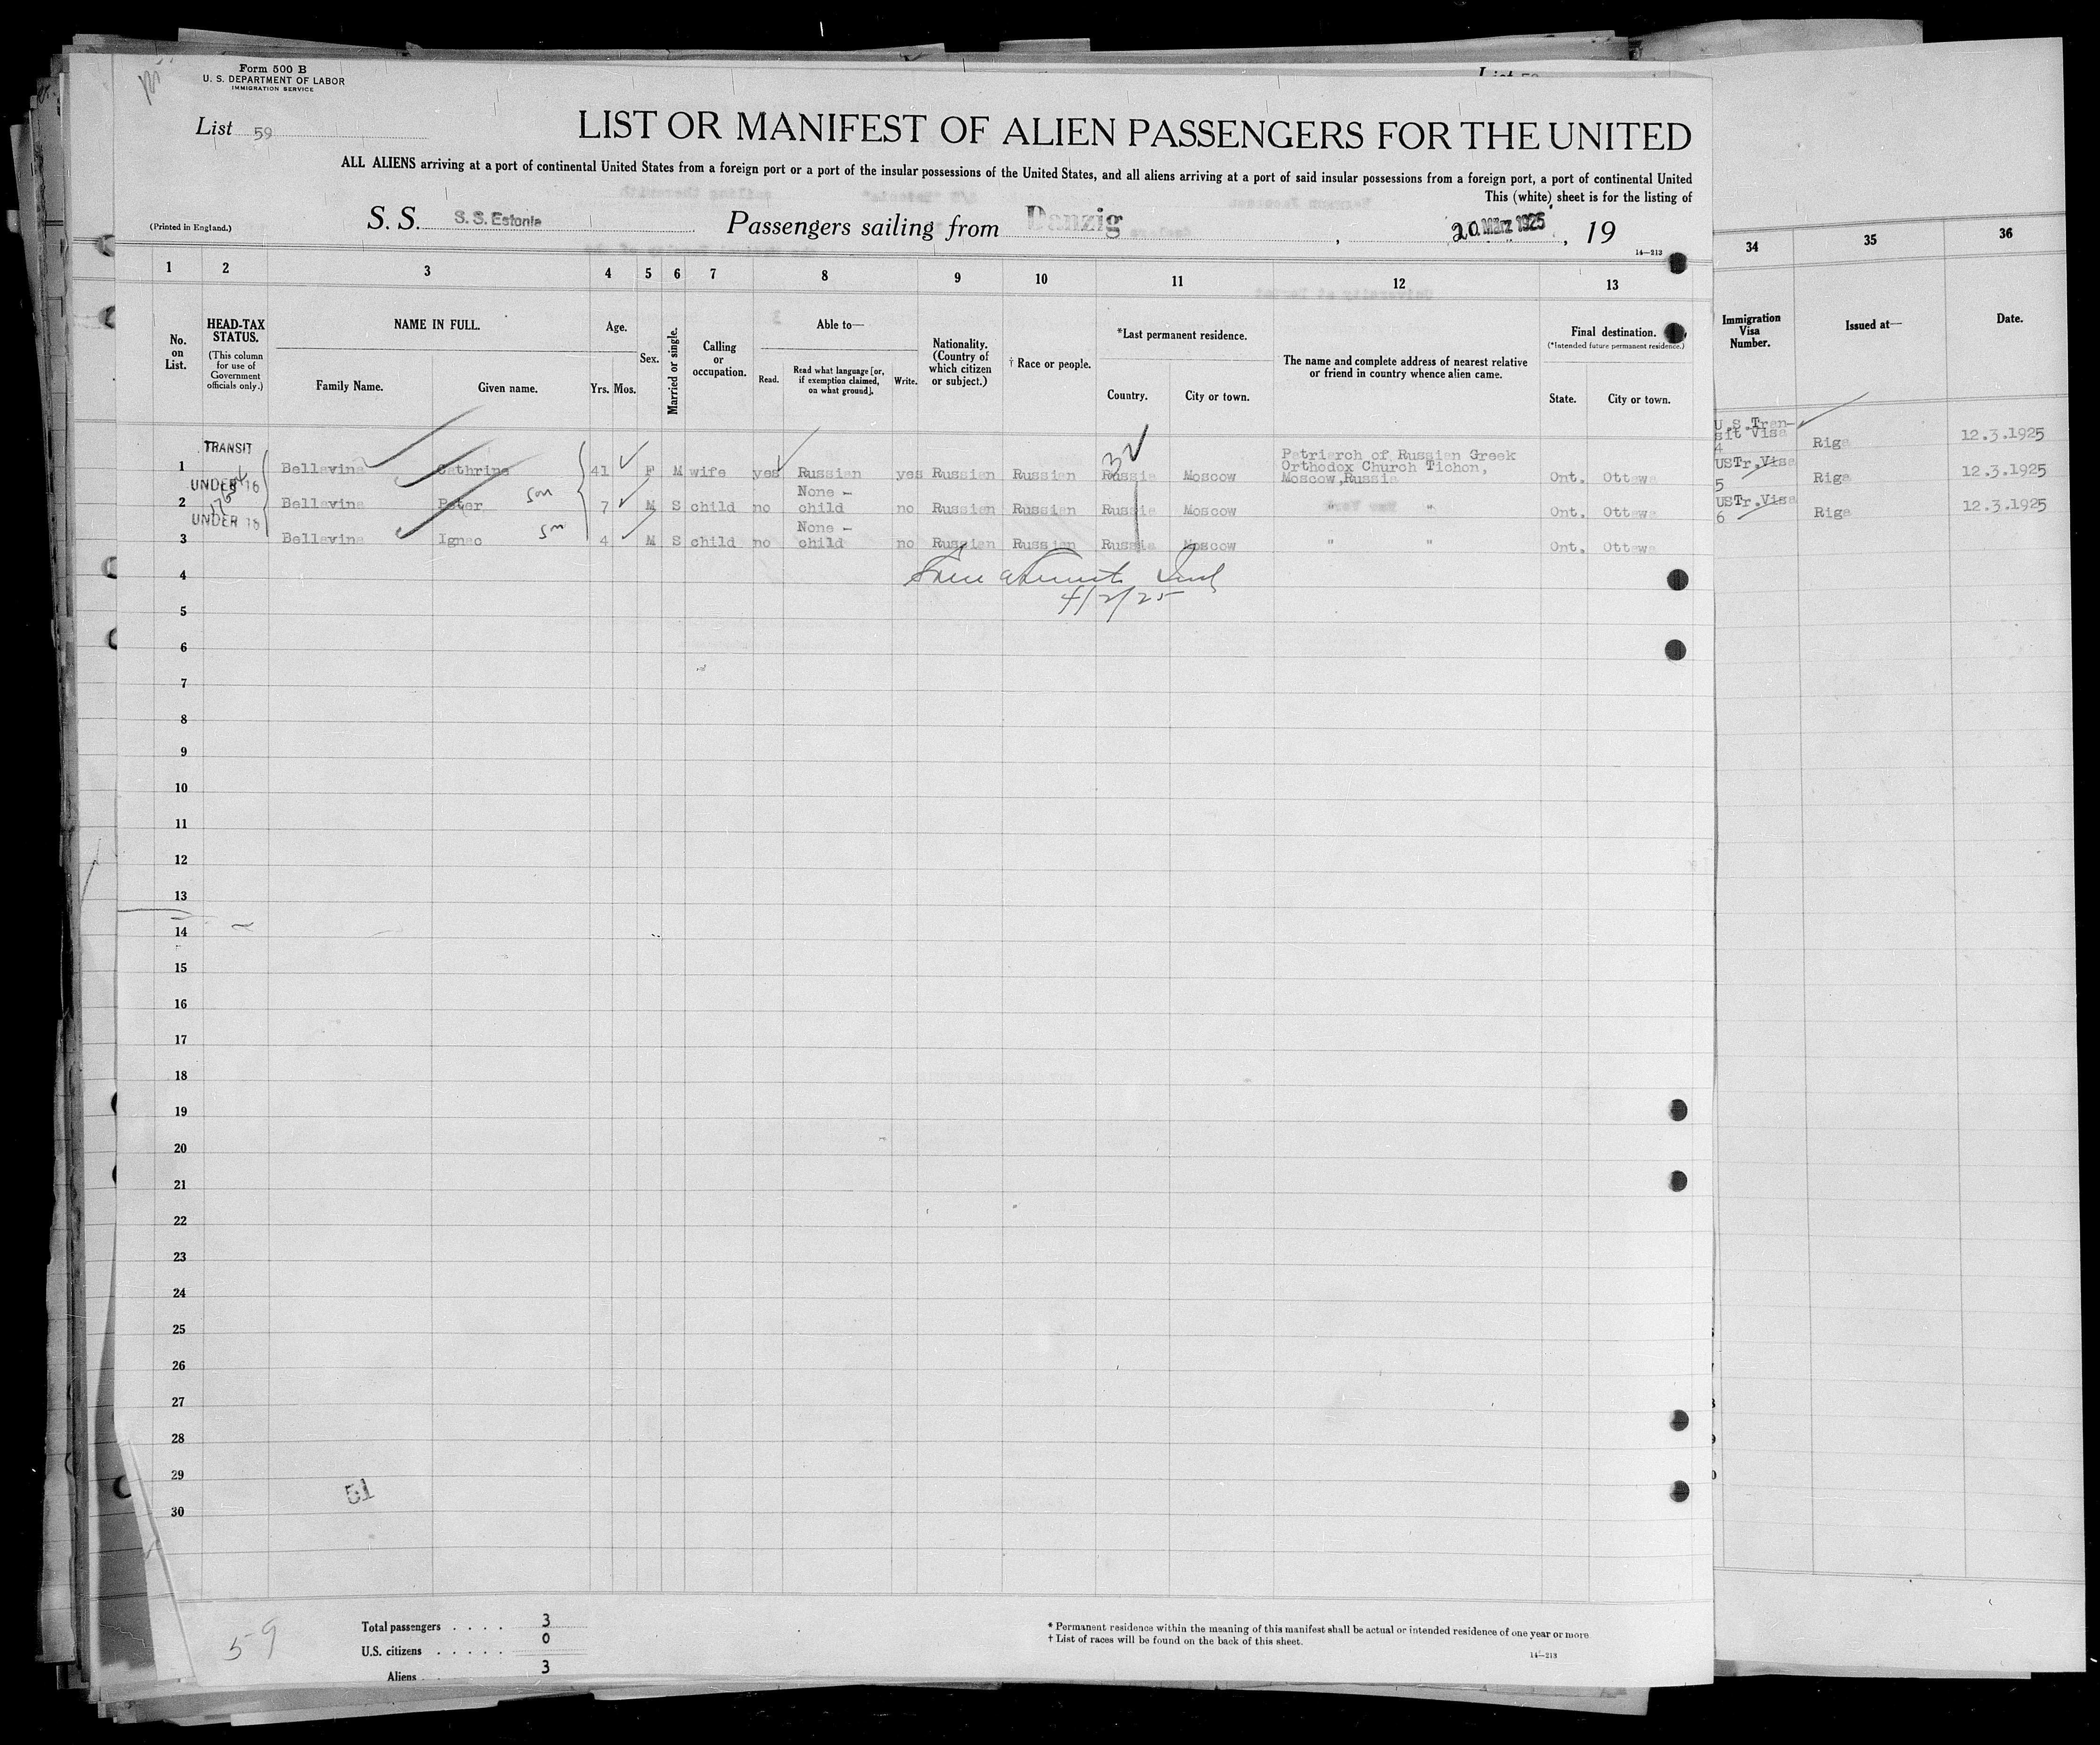 Form 500 B
U. S. DEPARTMENT OF LABOR
IMMIGRATION SERVICE
List 59
LIST OR MANIFEST OF ALIEN PASSENGERS FOR THE UNITED
ALL ALIENS arriving at a port of continental United States from a foreign port or a port of the insular possessions of the United States, and all aliens arriving at a port of said insular possessions from a foreign port, a port of continental United
This (white) sheet is for the listing of
(Printed in England.) S. S. S. S. Estonia Passengers sailing from Danzig, 20. März 1925, 19
14—213
1 2 3 4 5 6 7 8 9 10 11 12 13 34 35 36
No. on List.
HEAD-TAX STATUS.
(This column for use of Government officials only.)
NAME IN FULL.
Family Name. Given name.
Age.
Yrs. Mos.
Sex.
Married or single.
Calling or occupation.
Able to—
Read. Read what language [or, if exemption claimed, on what ground]. Write.
Nationality. (Country of which citizen or subject.)
† Race or people.
*Last permanent residence.
Country. City or town.
The name and complete address of nearest relative or friend in country whence alien came.
Final destination.
(*Intended future permanent residence.)
State. City or town.
Immigration Visa Number.
Issued at—
Date.
TRANSIT
1 Bellavina Cathrine 41 F M wife yes Russian yes Russian Russian Russia Moscow Patriarch of Russian Greek Orthodox Church Tichon, Moscow, Russia Ont. Ottawa U.S.Transit Visa 4 Riga 12.3.1925
UNDER 16
2 Bellavina Peter son 7 M S child no None - child no Russian Russian Russia Moscow " " Ont. Ottawa USTr.Visa 5 Riga 12.3.1925
UNDER 16
3 Bellavina Ignac son 4 M S child no None - child no Russian Russian Russia Moscow " " Ont. Ottawa USTr.Visa 6 Riga 12.3.1925
4
4/2/25
5
6
7
8
9
10
11
12
13
14
15
16
17
18
19
20
21
22
23
24
25
26
27
28
29
51
30
59
Total passengers . . . . 3
U.S. citizens . . . . . 0
Aliens . 3
* Permanent residence within the meaning of this manifest shall be actual or intended residence of one year or more.
† List of races will be found on the back of this sheet.
14—213